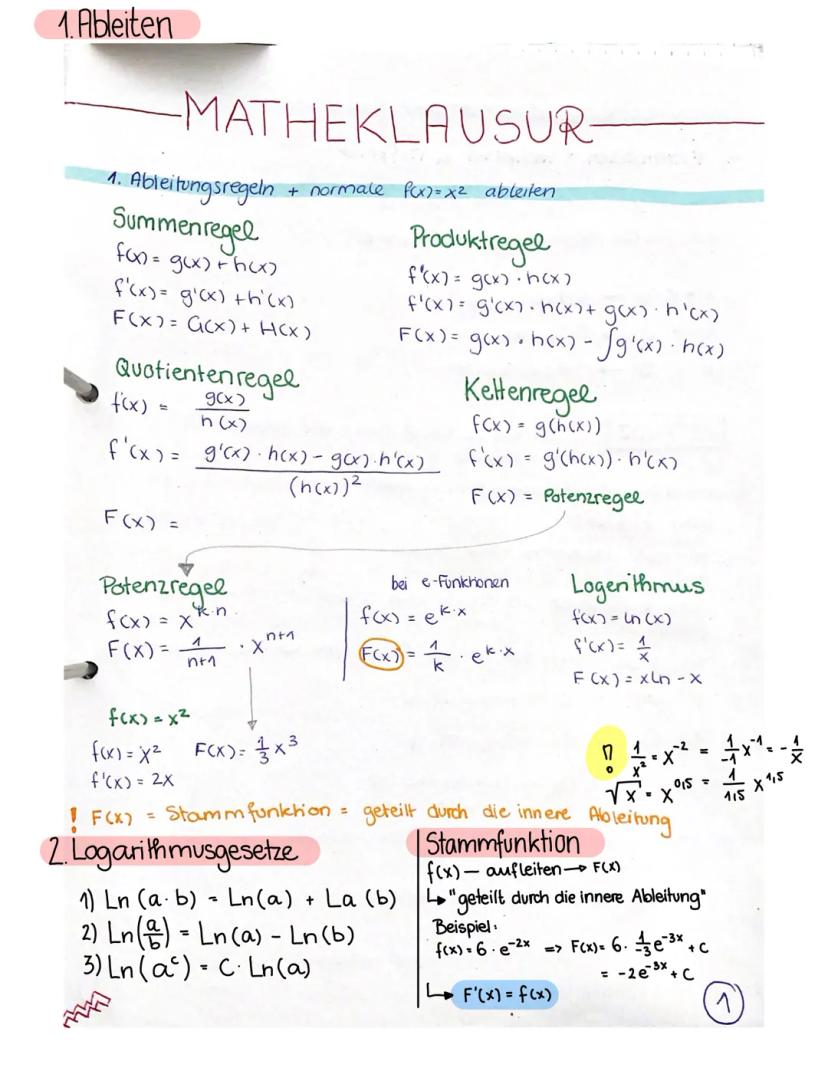 1. Ableiten
MATHEKLAUSUR
1. Ableitungsregeln + normale f(x)=x² ableiten
Summenregel
f(x) = g(x) + h(x)
f'(x) = g'(x) + h'(x)
F(x) = G(x) + H(x)
Produktregel
f'(x) = g(x) · h(x)
f'(x) = g'(x) · h(x) + g(x) · h'(x)
F(x) = g(x) · h(x) - ∫g'(x) · h(x)
Quotientenregel
f'(x) = g(x) / h(x)
f'(x) = g'(x) · h(x) - g(x) · h'(x) / (h(x))²
F(x) =
Kettenregel
f(x) = g(h(x))
f'(x) = g'(h(x)) · h'(x)
F(x) = Potenzregel
Potenzregel
f(x) = x^k·n
F(x) = 1/n+1 · x^n+1
bei e-Funktionen
f(x) = e^k·x
F(x) = 1/k · e^k·x
Logerithmus
f(x) = ln(x)
f'(x) = 1/x
F(x) = xln - x
f(x) = x²
f(x) = x² F(x) = 1/3 x³
f'(x) = 2x
1/x² = x^-2 = 1/-1 x^-1 = - 1/x
√x = x^0,5 = 1/1,5 x^1,5
! F(x) = Stammfunktion = geteilt durch die innere Ableitung
2. Logarithmusgesetze
1) Ln (a·b) = Ln(a) + La (b)
2) Ln(a/b) = Ln(a) - Ln(b)
3) Ln(a^c) = C · Ln(a)
Stammfunktion
f(x) — aufleiten → F(x)
↳ "geteilt durch die innere Ableitung"
Beispiel:
f(x) = 6 · e^-2x => F(x) = 6 · 1/-3 e^-3x + C
= -2e^-3x + C
↳ F'(x) = f(x)
1